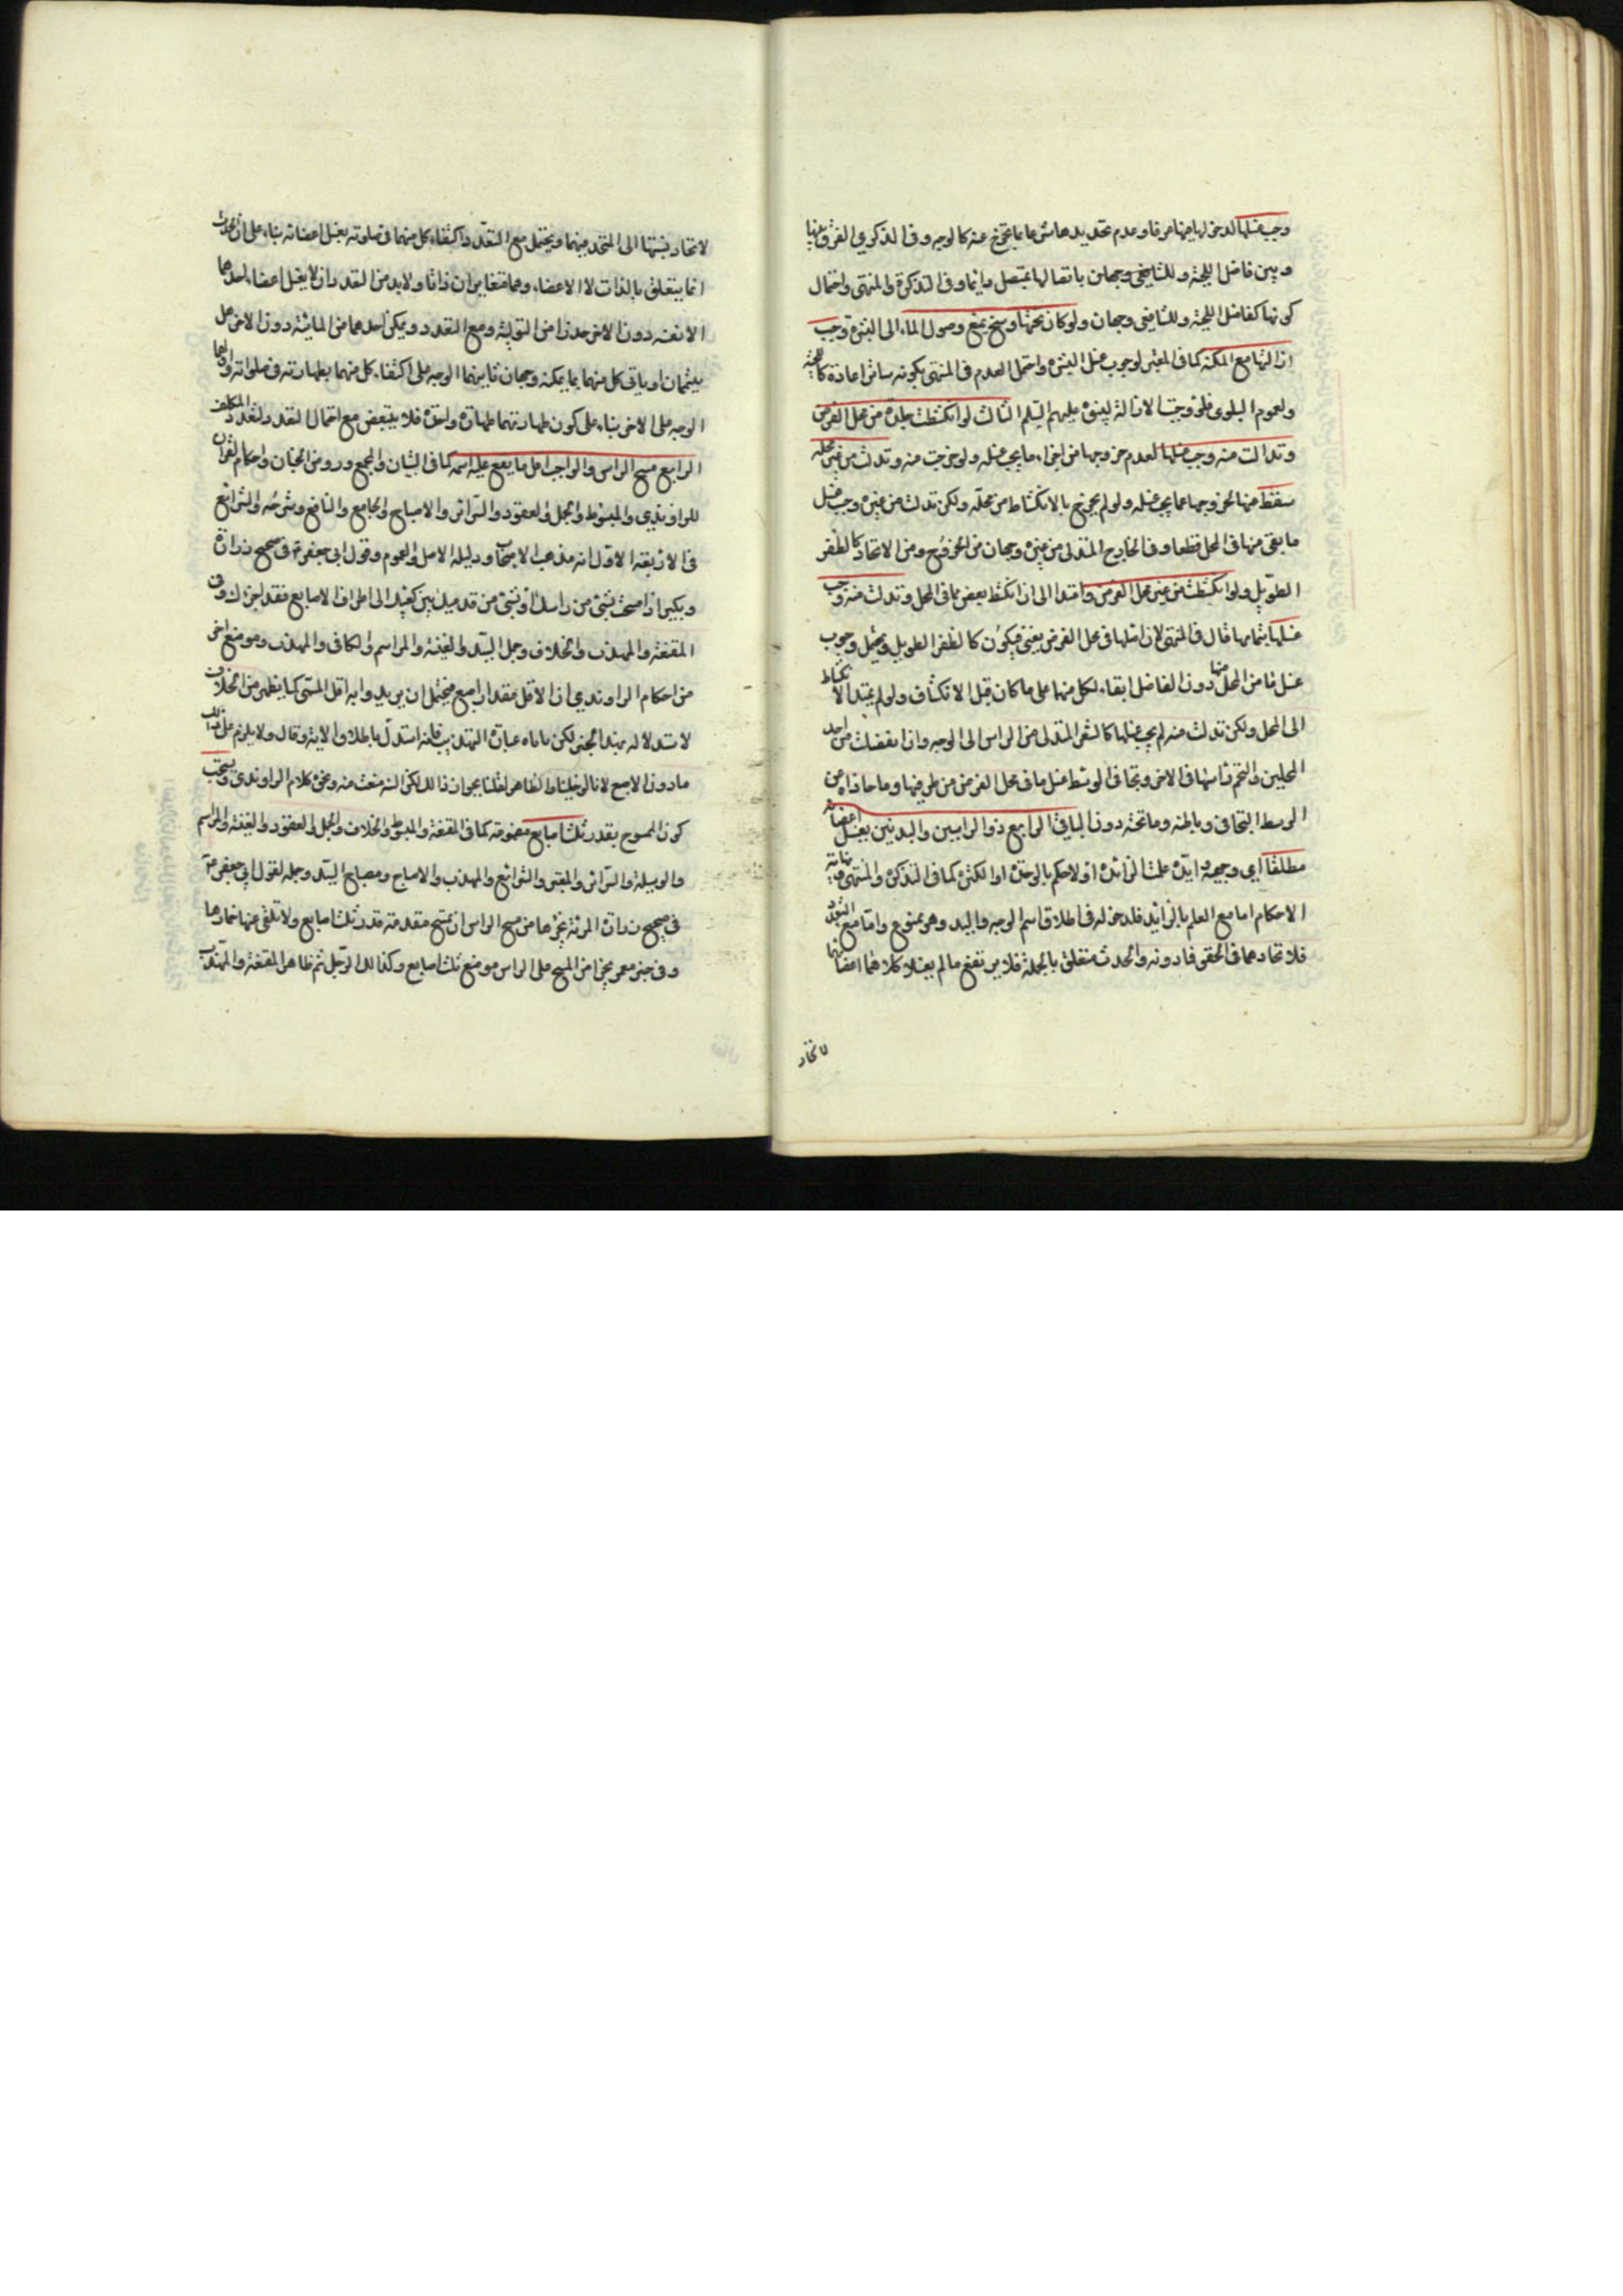 وجب غسلها لدخولها فيها عرفا وعدم تحديدها شرعا بما يخرج عنه كالوجه وفي الذكرى الفرق بينها
وبين فاضل اللحية وللشافعي وجهان باتصالها بمتصل دائما وفي التذكرة والمنتهى واحتمال
كونها كفاضل اللحية وللشافعي وجهان ولو كان تحتها وسخ يمنع وصول الماء الى البشرة وجب
ازالتها مع المكنة كما في المعتبر لوجوب غسل البشرة واحتمل العدم في المنتهى بكونه ساترا عادة كاللحية
ولعموم البلوى فلو وجبت الازالة لبينوه عليهم السلم الثالث لو انكشطت جلدة من محل الفرض
وتدلت منه وجب غسلها لعدم خروجها من اجزاء ما يجب غسله ولو خرجت منه وتدلت من غير محله
سقط منها لخروجها عما يجب غسله ولو لم يخرج بالانكشاط من محله ولكن تدلت من غيره وجب غسل
ما بقي منها في المحل قطعا وفي الخارج المتدلي من غيره وجهان من الخروج ومن الاتحاد كالظفر
الطويل ولو انكشطت من غير محل الفرض وامتدا الى ان انكشط بعض ما في المحل وتدلت منه وجب
غسلها بتمامها قال في المنتهى لان اصلها في محل الفرض يعني فيكون كالظفر الطويل ويحتمل وجوب
غسل ما من المحل منها دون الفاضل ابقاء لكل منها على ما كان قبل الانكشاف ولو لم يمتد الانكشاط
الى المحل ولكن تدلت منه لم يجب غسلها كالشعر المتدلي من الراس الى الوجه واذا انفصلت من احد
المحلين والتحم راسها في الاخر وتجافى الوسط غسل ما في محل الفرض من طرفيها وما حاذاه من
الوسط المتجافي وباطنه وما تحته دون الباقي الرابع ذو الراسين والبدنين يغسل اعضائه
مطلقا اي وجهيه وايديه علمت الزائدة او لا حكم بالوحدة او الكثرة كما في التذكرة والمنتهى ونهاية
الاحكام اما مع العلم بالزائد فلدخوله في اطلاق اسم الوجه واليد وهو ممنوع واما مع التعدد
فلاتحادهما في الحقو فما دونه والحدث متعلق بالجملة فلا يرتفع ما لم يغسلا كلاهما اعضائهما
لاتحاد
لاتحاد نسبتها الى المتحد بينهما ويحتمل مع التعدد اكتفاء كل منهما في صلوته بغسل اعضائه بناء على ان الحدث
انما يتعلق بالذات لا الاعضاء وهما متغايران ذاتا ولا بد من التعدد ان لا يغسل اعضاء احدهما
الا نفسه دون الاخر حذرا من التولية ومع التعدد ويمكن احدهما من المائية دون الاخر هل
يتيممان او ياتي كل منهما بما يمكنه وجهان ثانيهما الوجه على اكتفاء كل منهما بطهارته في صلواته واولهما
الوجه على الاخر بناء على كون طهارتهما طهارة واحدة فلا يتبعض مع احتمال التعدد لتعدد المكلف
الرابع مسح الراس والواجب اقل ما يقع عليه اسمه كما في التبيان والمجمع وروض الجنان واحكام القران
للراوندي والمبسوط والجمل والعقود والسرائر والاصباح والجامع والنافع وشرحه والشرائع
في الاربعة الاول انه مذهب الاصحاب ودليله الاصل والعموم وقول ابي جعفر ع في صحيح زرارة
وبكير اذا مسحت بشئ من راسك او بشئ من قدميك ما بين كعبيك الى اطراف الاصابع فقد اجزاك وفي
المقنعة والتهذيب والخلاف وجمل السيد والغنية والمراسم والكافي والمهذب وموضع اخر
من احكام الراوندي ان الاقل مقدار اصبع فيحتمل ان يريدوا به اقل المسمى كما يظهر من الخلاف
لاستدلاله بهذا الخبر لكن ياباه عبارة التهذيب فانه استدل باطلاق الاية وقال ولا يلزم على ذلك
ما دون الاصبع لانا لو خلينا والظاهر لقلنا بجواز ذلك لكن السنة منعت منه ونحوه كلام الراوندي ويستحب
كون الممسوح بقدر ثلث اصابع مضمومة كما في المقنعة والمبسوط والخلاف والجمل والعقود والغنية والمراسم
والوسيلة والسرائر والمعتبر والشرائع والمهذب والاصباح ومصباح السيد وجمله لقول ابي جعفر ع
في صحيح زرارة المرئة يجزيها من مسح الراس ان تمسح مقدمه قدر ثلث اصابع ولا تلقي عنها خمارها
وفي خبر معمر يجزي من المسح على الراس موضع ثلث اصابع وكذلك الرجل ثم ظاهر المقنعة والتهذيب